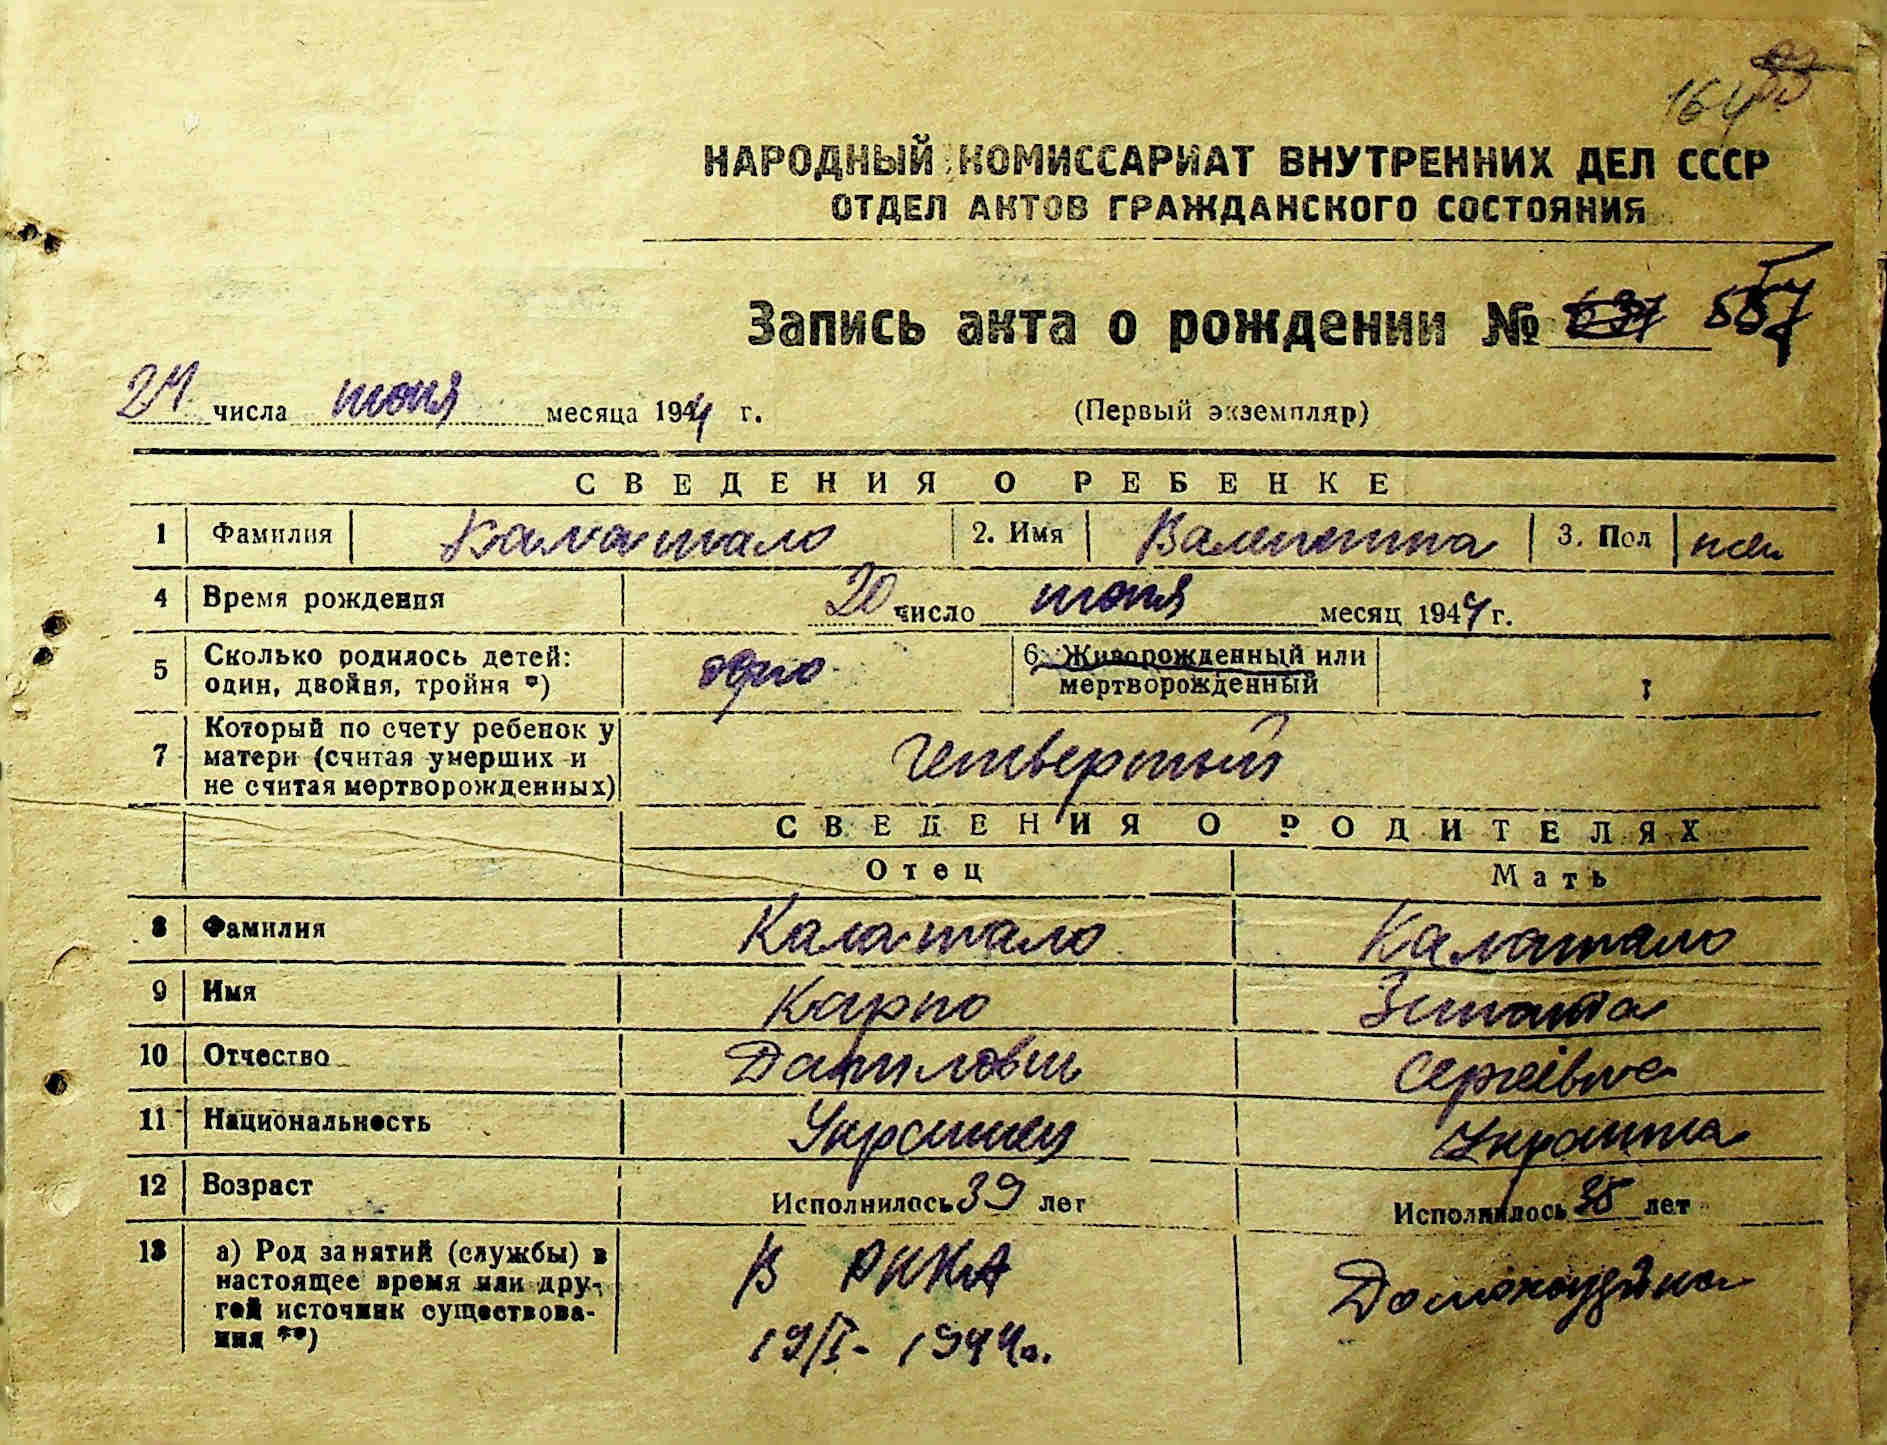 164
НАРОДНЫЙ КОМИССАРИАТ ВНУТРЕННИХ ДЕЛ СССР
ОТДЕЛ АКТОВ ГРАЖДАНСКОГО СОСТОЯНИЯ
Запись акта о рождении № 557
24 числа июня месяца 1944 г. (Первый экземпляр)
СВЕДЕНИЯ О РЕБЕНКЕ
1 Фамилия Калатало 2. Имя Валентина 3. Пол жен
4 Время рождения 20 число июня месяц 1944 г.
5 Сколько родилось детей: один, двойня, тройня *) одно 6. Живорожденный или мертворожденный
7 Который по счету ребенок у матери (считая умерших и не считая мертворожденных) четвертый
СВЕДЕНИЯ О РОДИТЕЛЯХ
Отец Мать
8 Фамилия Калатало Калатало
9 Имя Карпо Зинаида
10 Отчество Данилович Сергеівна
11 Национальность Украинец Украинка
12 Возраст Исполнилось 39 лет Исполнилось 35 лет
13 а) Род занятий (службы) в настоящее время или другой источник существования **) В РККА Домохозяйка
19/I - 1944г.